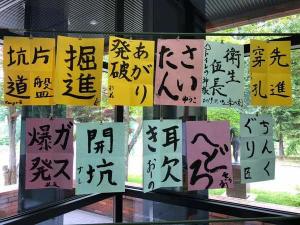 先進
穿孔
衛生
伍長
さい
たん
あがり
発破
掘進
片盤
坑道
ちんく
ぐり
へどろ
耳欠
きおの
開坑
ガス
爆発